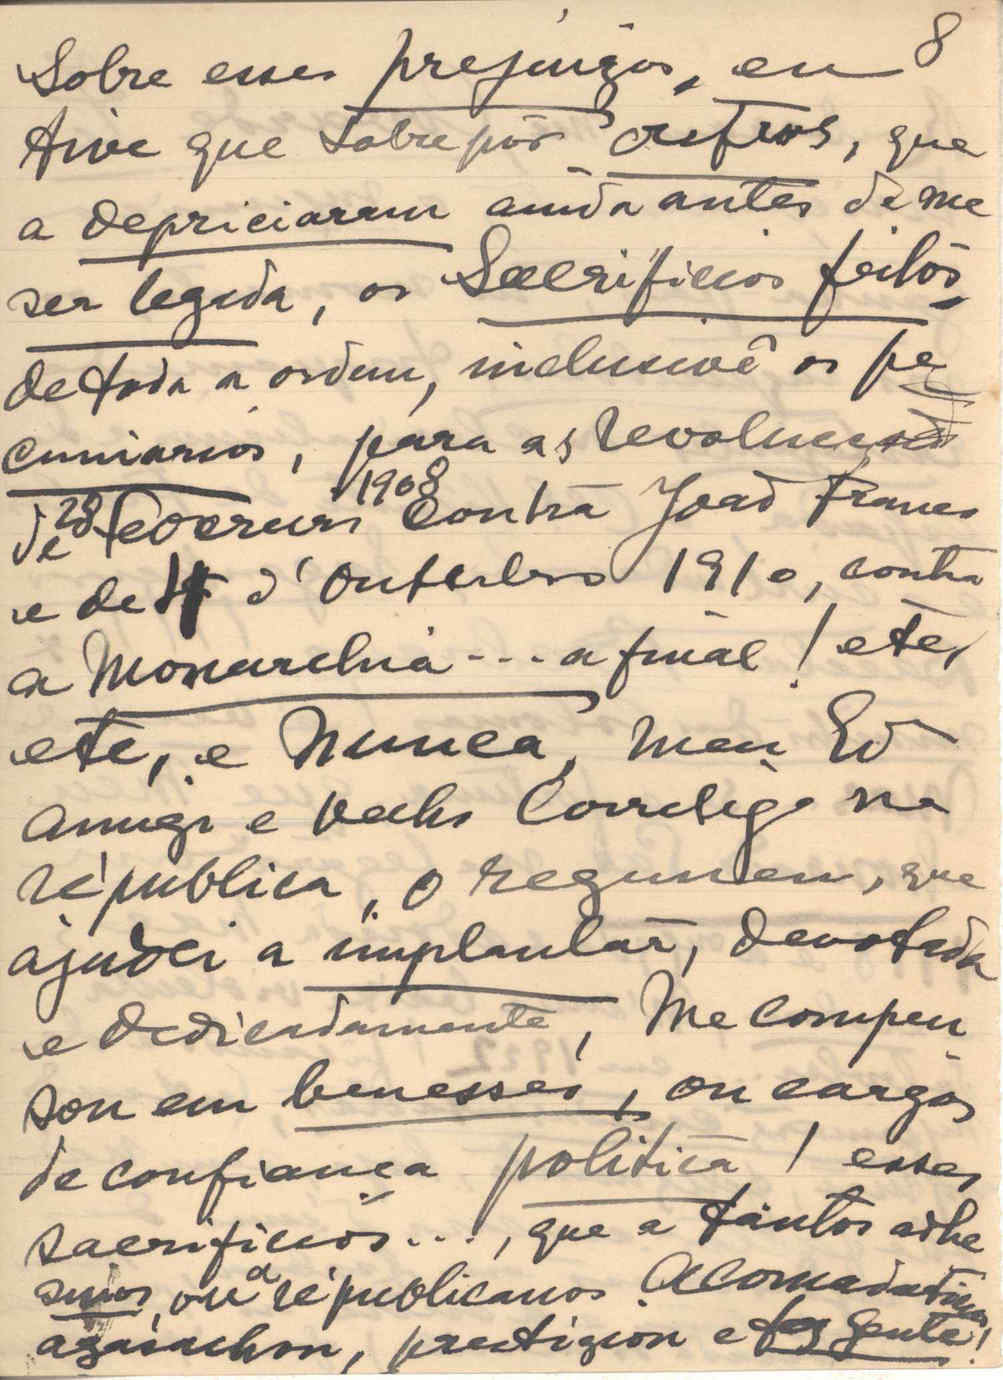 8
Sobre esses prejuizos, eu
tive que sobrepôr outros, que
a depriciaram ainda antes de me
ser legada, os Sacrificios feitos
de toda a ordem, inclusivé os pe
cuniarios, para as revoluções
de 28 Fevereiro 1908 contra João Franco
e de 4 d'Outubro 1910, contra
a Monarchia --- afinal! etc,
etc, e Nunca, meu Ed
amigo e velho Correlig.º na
républica, o regimen, que
ajudei a implantar, devotada
e dedicadamente, me compen
sou em benesses, ou cargos
de confiança politica! esses
sacrificios..., que a tantos adhe
sivos, ou a républicanos acomodaticios
agasalhou, prestigiou e fez gente!